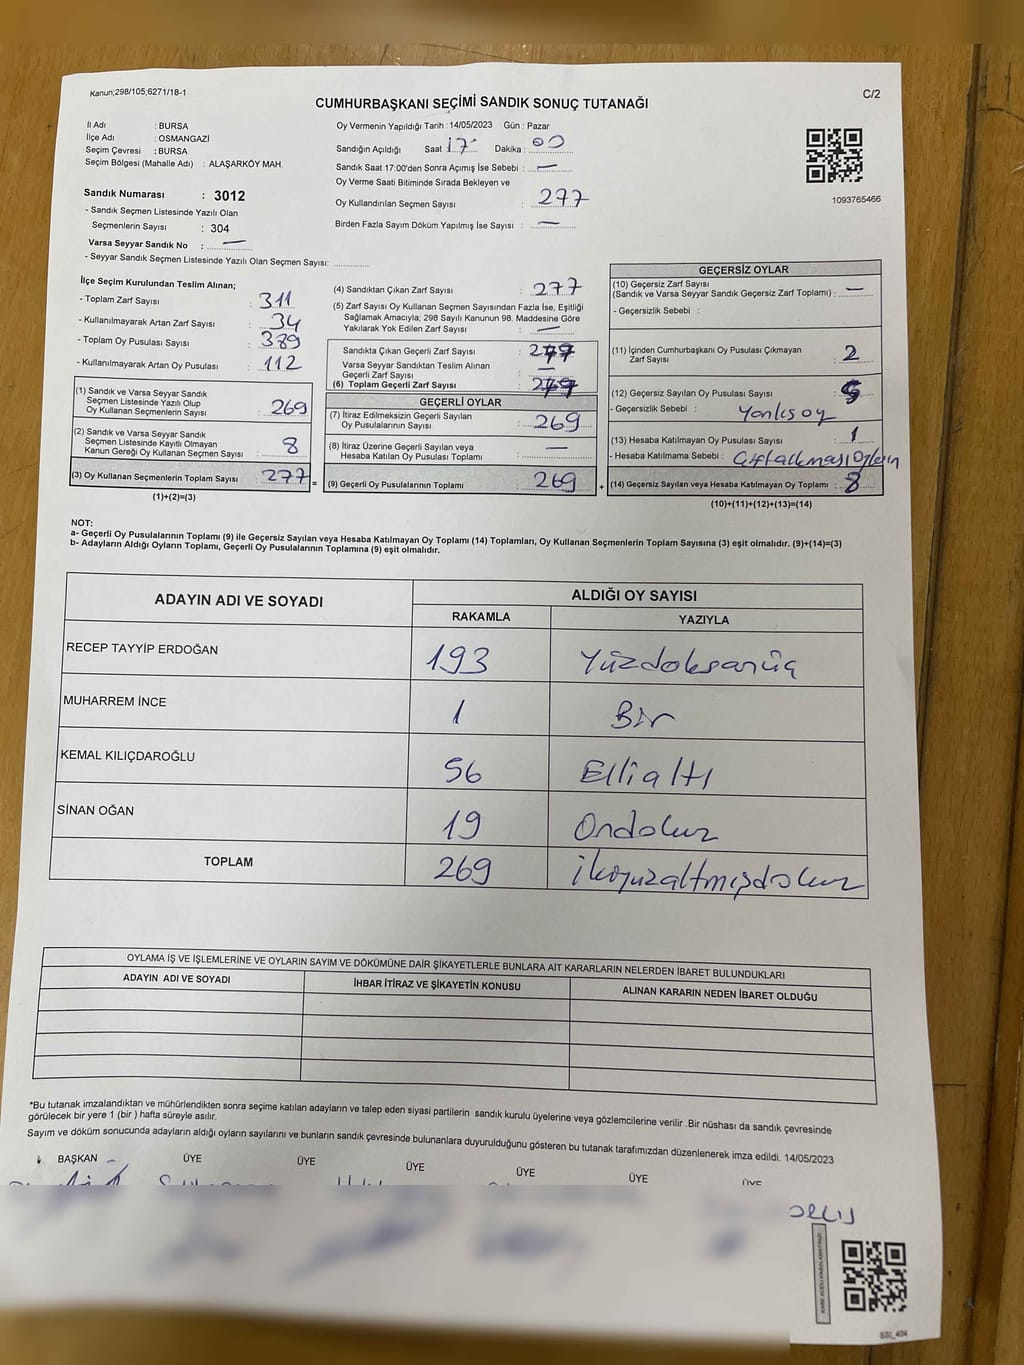 Kanun;298/105;6271/18-1
CUMHURBAŞKANI SEÇİMİ SANDIK SONUÇ TUTANAĞI
C/2
İl Adı : BURSA
İlçe Adı : OSMANGAZİ
Seçim Çevresi : BURSA
Seçim Bölgesi (Mahalle Adı) : ALAŞARKÖY MAH.
Oy Vermenin Yapıldığı Tarih : 14/05/2023 Gün : Pazar
Sandığın Açıldığı Saat 17 Dakika : 00
Sandık Saat 17:00'den Sonra Açımış İse Sebebi : —
Oy Verme Saati Bitiminde Sırada Bekleyen ve
Oy Kullandırılan Seçmen Sayısı : 277
Birden Fazla Sayım Döküm Yapılmış İse Sayısı : —
1093765466
Sandık Numarası : 3012
- Sandık Seçmen Listesinde Yazılı Olan
Seçmenlerin Sayısı : 304
Varsa Seyyar Sandık No : —
- Seyyar Sandık Seçmen Listesinde Yazılı Olan Seçmen Sayısı:
İlçe Seçim Kurulundan Teslim Alınan;
- Toplam Zarf Sayısı : 311
- Kullanılmayarak Artan Zarf Sayısı : 34
- Toplam Oy Pusulası Sayısı : 389
- Kullanılmayarak Artan Oy Pusulası : 112
(1) Sandık ve Varsa Seyyar Sandık
Seçmen Listesinde Yazılı Olup
Oy Kullanan Seçmenlerin Sayısı : 269
(2) Sandık ve Varsa Seyyar Sandık
Seçmen Listesinde Kayıtlı Olmayan
Kanun Gereği Oy Kullanan Seçmen Sayısı : 8
(3) Oy Kullanan Seçmenlerin Toplam Sayısı : 277 =
(1)+(2)=(3)
(4) Sandıktan Çıkan Zarf Sayısı : 277
(5) Zarf Sayısı Oy Kullanan Seçmen Sayısından Fazla İse, Eşitliği
Sağlamak Amacıyla; 298 Sayılı Kanunun 98. Maddesine Göre
Yakılarak Yok Edilen Zarf Sayısı : —
Sandıkta Çıkan Geçerli Zarf Sayısı :
Varsa Seyyar Sandıktan Teslim Alınan
Geçerli Zarf Sayısı : —
(6) Toplam Geçerli Zarf Sayısı :
GEÇERLİ OYLAR
(7) İtiraz Edilmeksizin Geçerli Sayılan
Oy Pusulalarının Sayısı : 269
(8) İtiraz Üzerine Geçerli Sayılan veya
Hesaba Katılan Oy Pusulası Toplamı : —
(9) Geçerli Oy Pusulalarının Toplamı : 269 +
GEÇERSİZ OYLAR
(10) Geçersiz Zarf Sayısı
(Sandık ve Varsa Seyyar Sandık Geçersiz Zarf Toplamı) : —
- Geçersizlik Sebebi :
(11) İçinden Cumhurbaşkanı Oy Pusulası Çıkmayan
Zarf Sayısı : 2
(12) Geçersiz Sayılan Oy Pusulası Sayısı : 5
- Geçersizlik Sebebi : Yanlış oy
(13) Hesaba Katılmayan Oy Pusulası Sayısı : 1
- Hesaba Katılmama Sebebi :
(14) Geçersiz Sayılan veya Hesaba Katılmayan Oy Toplamı : 8
(10)+(11)+(12)+(13)=(14)
NOT:
a- Geçerli Oy Pusulalarının Toplamı (9) ile Geçersiz Sayılan veya Hesaba Katılmayan Oy Toplamı (14) Toplamları, Oy Kullanan Seçmenlerin Toplam Sayısına (3) eşit olmalıdır. (9)+(14)=(3)
b- Adayların Aldığı Oyların Toplamı, Geçerli Oy Pusulalarının Toplamına (9) eşit olmalıdır.
ADAYIN ADI VE SOYADI
ALDIĞI OY SAYISI
RAKAMLA YAZIYLA
RECEP TAYYİP ERDOĞAN 193 Yüzdoksanüç
MUHARREM İNCE 1 Bir
KEMAL KILIÇDAROĞLU 56 Ellialtı
SİNAN OĞAN 19 Ondokuz
TOPLAM 269 ikiyüzaltmışdokuz
OYLAMA İŞ VE İŞLEMLERİNE VE OYLARIN SAYIM VE DÖKÜMÜNE DAİR ŞİKAYETLERLE BUNLARA AİT KARARLARIN NELERDEN İBARET BULUNDUKLARI
ADAYIN ADI VE SOYADI İHBAR İTİRAZ VE ŞİKAYETİN KONUSU ALINAN KARARIN NEDEN İBARET OLDUĞU
*Bu tutanak imzalandıktan ve mühürlendikten sonra seçime katılan adayların ve talep eden siyasi partilerin sandık kurulu üyelerine veya gözlemcilerine verilir .Bir nüshası da sandık çevresinde
görülecek bir yere 1 (bir ) hafta süreyle asılır.
Sayım ve döküm sonucunda adayların aldığı oyların sayılarını ve bunların sandık çevresinde bulunanlara duyurulduğunu gösteren bu tutanak tarafımızdan düzenlenerek imza edildi. 14/05/2023
BAŞKAN ÜYE ÜYE ÜYE ÜYE ÜYE ÜYE
SSI_404